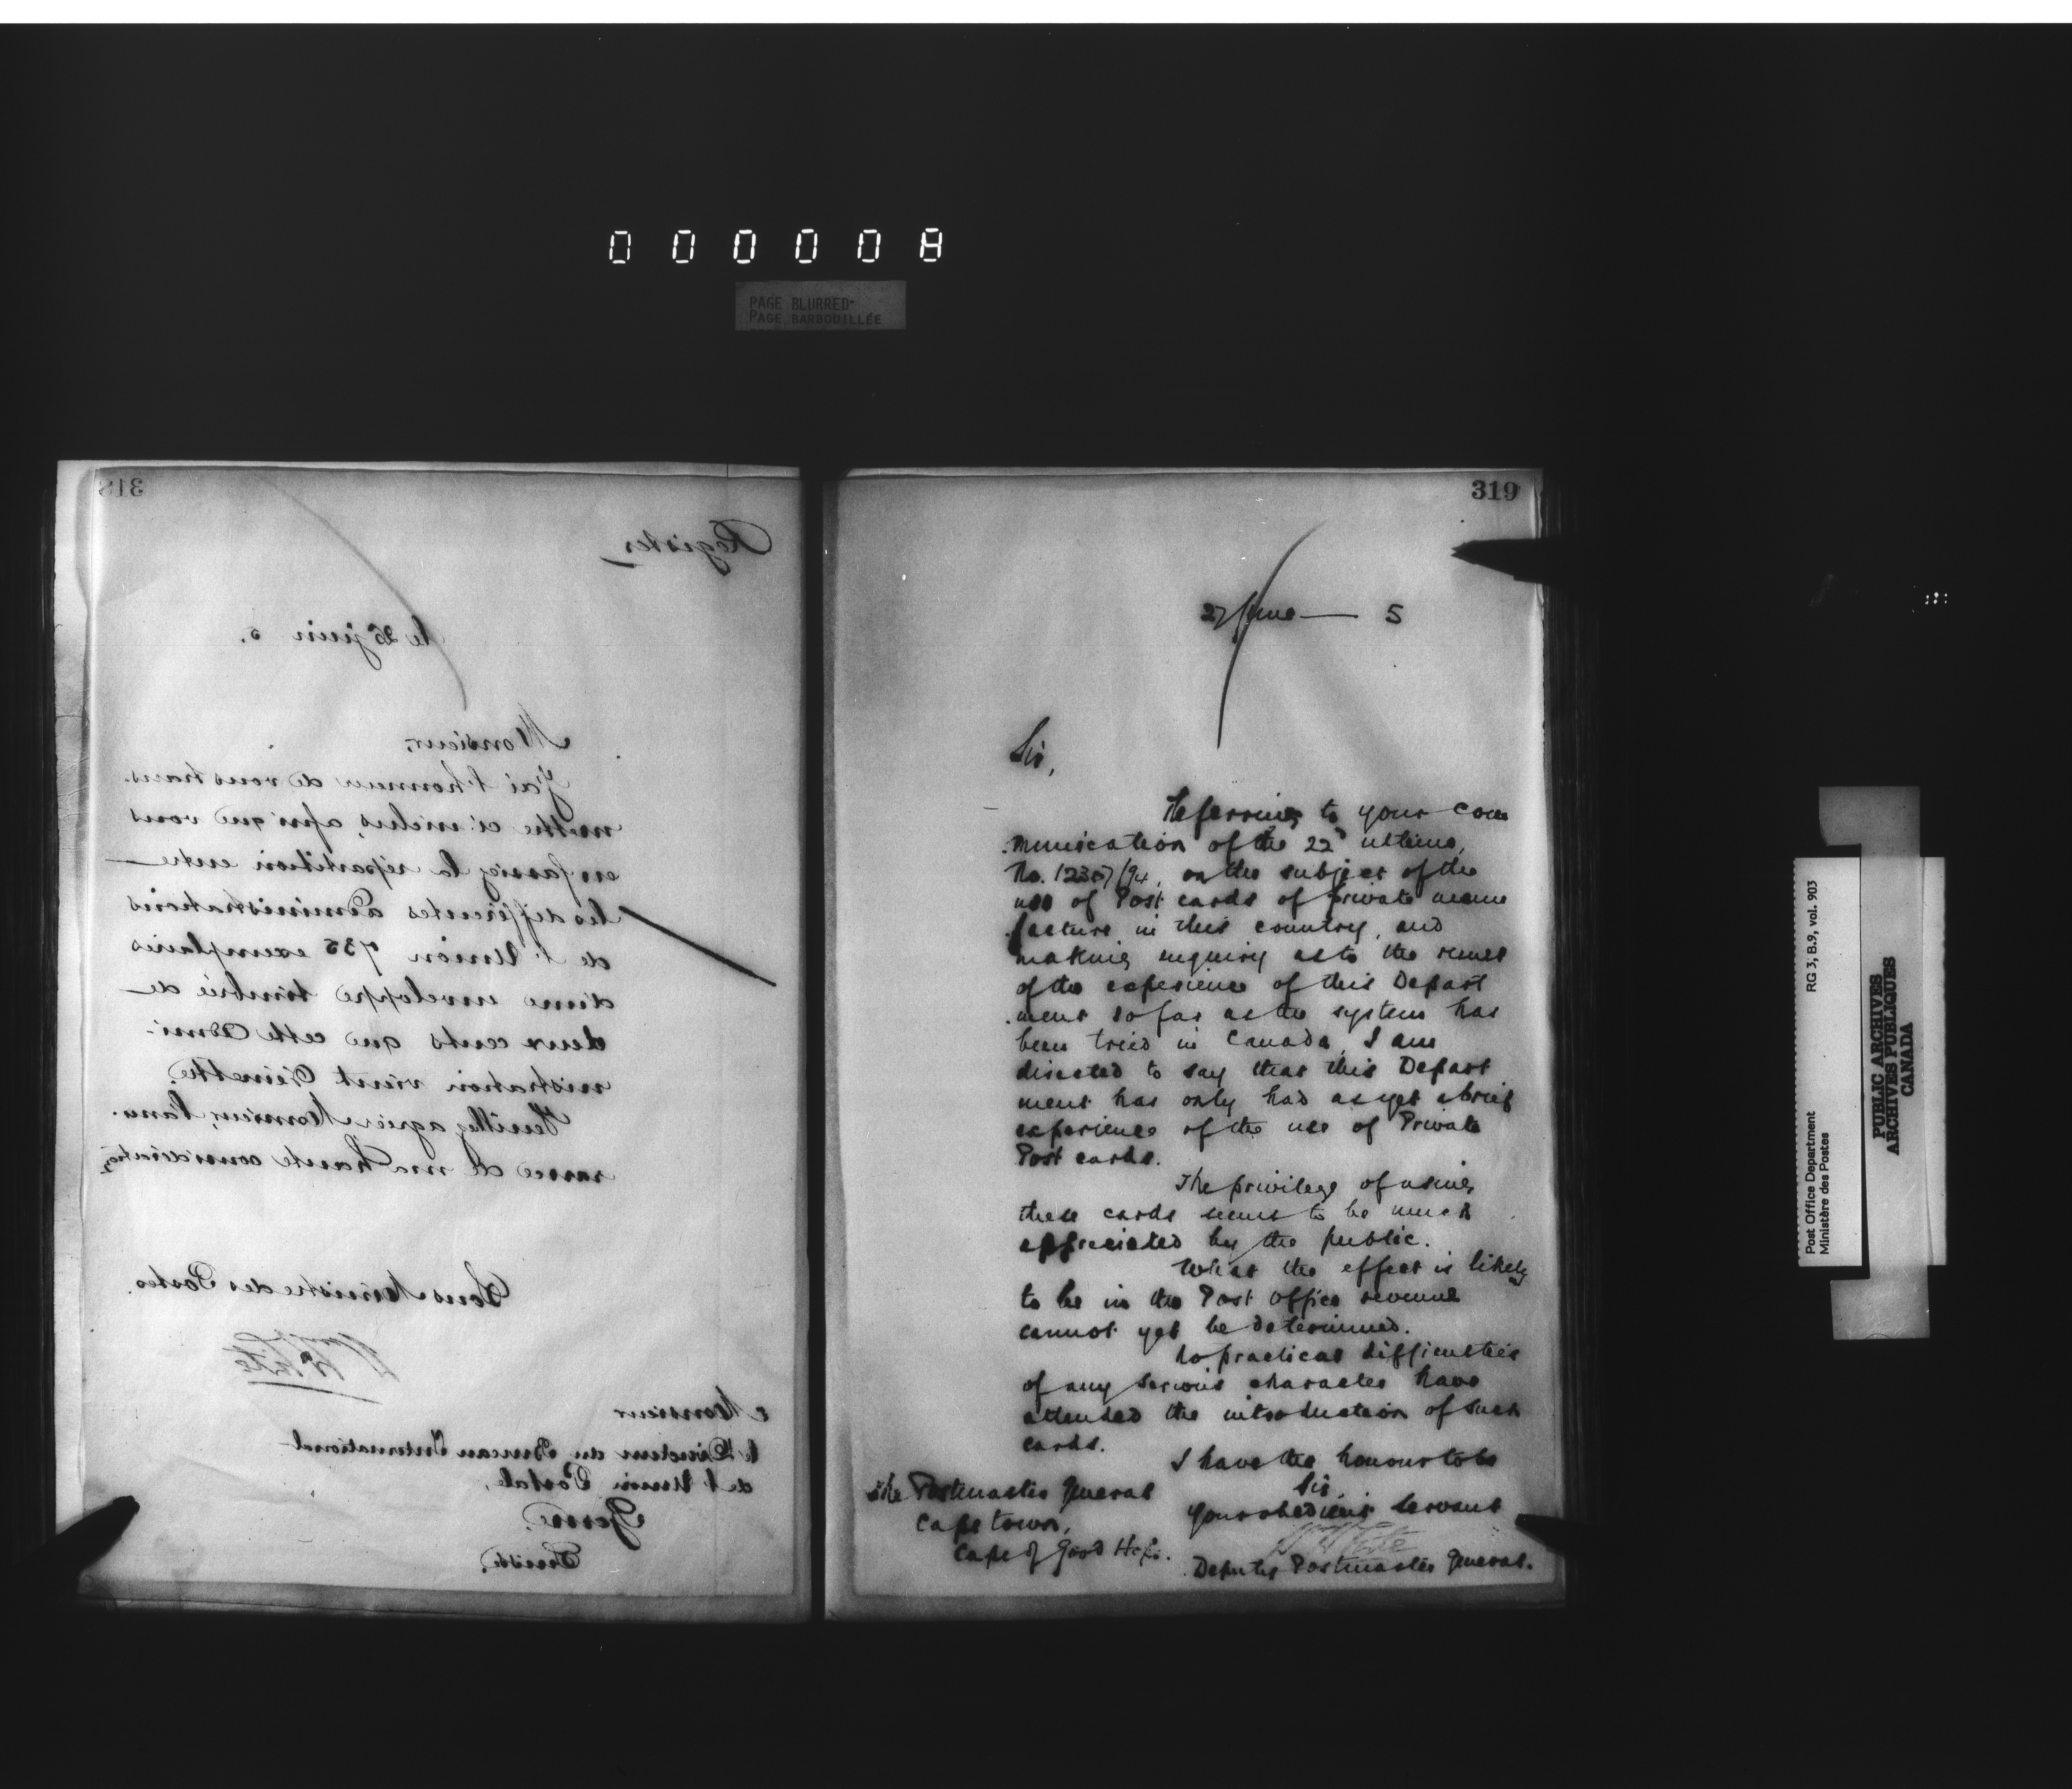 000008
PAGE BLURRED
PAGE BARBOUILLÉE
318
Register
le 26 juin 5.
Monsieur,
J'ai l'honneur de vous trans-
mettre ci inclus, afin que vous
en fassiez la répartition entre
les différentes administrations
de l'Union 735 exemplaires
d'une enveloppe timbrée de
deux cents que cette admi-
nistration vient d'émettre.
Veuillez agréer Monsieur, l'assu-
rance de ma haute considération,
Sous Ministre des Postes.
Monsieur
le Directeur du Bureau International
de l'Union Postale,
Berne,
Suisse.
319
27 June — 5
Sir,
Referring to your com
munication of the 22d ultimo,
No. 1235/94, on the subject of the
use of Post cards of private manu
facture in this country, and
making enquiry as to the result
of the experience of this Depart
ment so far as the system has
been tried in Canada, I am
directed to say that this Depart
ment has only had as yet a brief
experience of the use of Private
Post cards.
The privilege of using
these cards seems to be much
appreciated by the public.
What the effect is likely
to be in the Post Office revenue
cannot yet be determined.
No practical difficulties
of any serious character have
attended the introduction of such
cards.
I have the honour to be
Sir,
Your obedient Servant
Deputy Postmaster General.
The Postmaster General
Cape town,
Cape of Good Hope.
Post Office Department
Ministère des Postes
RG 3, B.9, vol. 903
PUBLIC ARCHIVES
ARCHIVES PUBLIQUES
CANADA